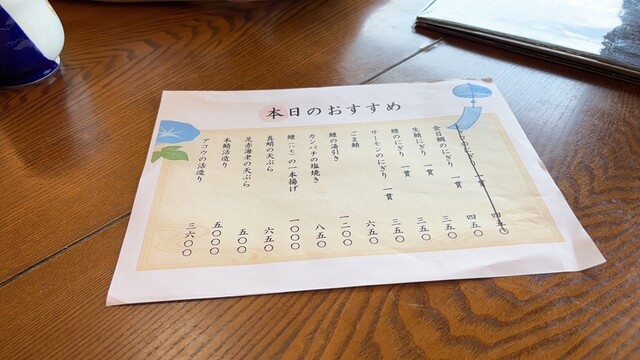 本日のおすすめ
のにぎり 一貫 四五〇
金目鯛のにぎり 一貫 四五〇
生鯖にぎり 一貫 三五〇
鱧のにぎり 一貫 三五〇
サーモンのにぎり 一貫 三五〇
ごま鯖 六五〇
鱧の湯引き 一二〇〇
カンパチの塩焼き 八五〇
鱧の一本揚げ 一〇〇〇
真蛸の天ぷら 六五〇
足赤海老の天ぷら 五〇〇
本鯖活造り 五〇〇〇
アコウの活造り 三六〇〇